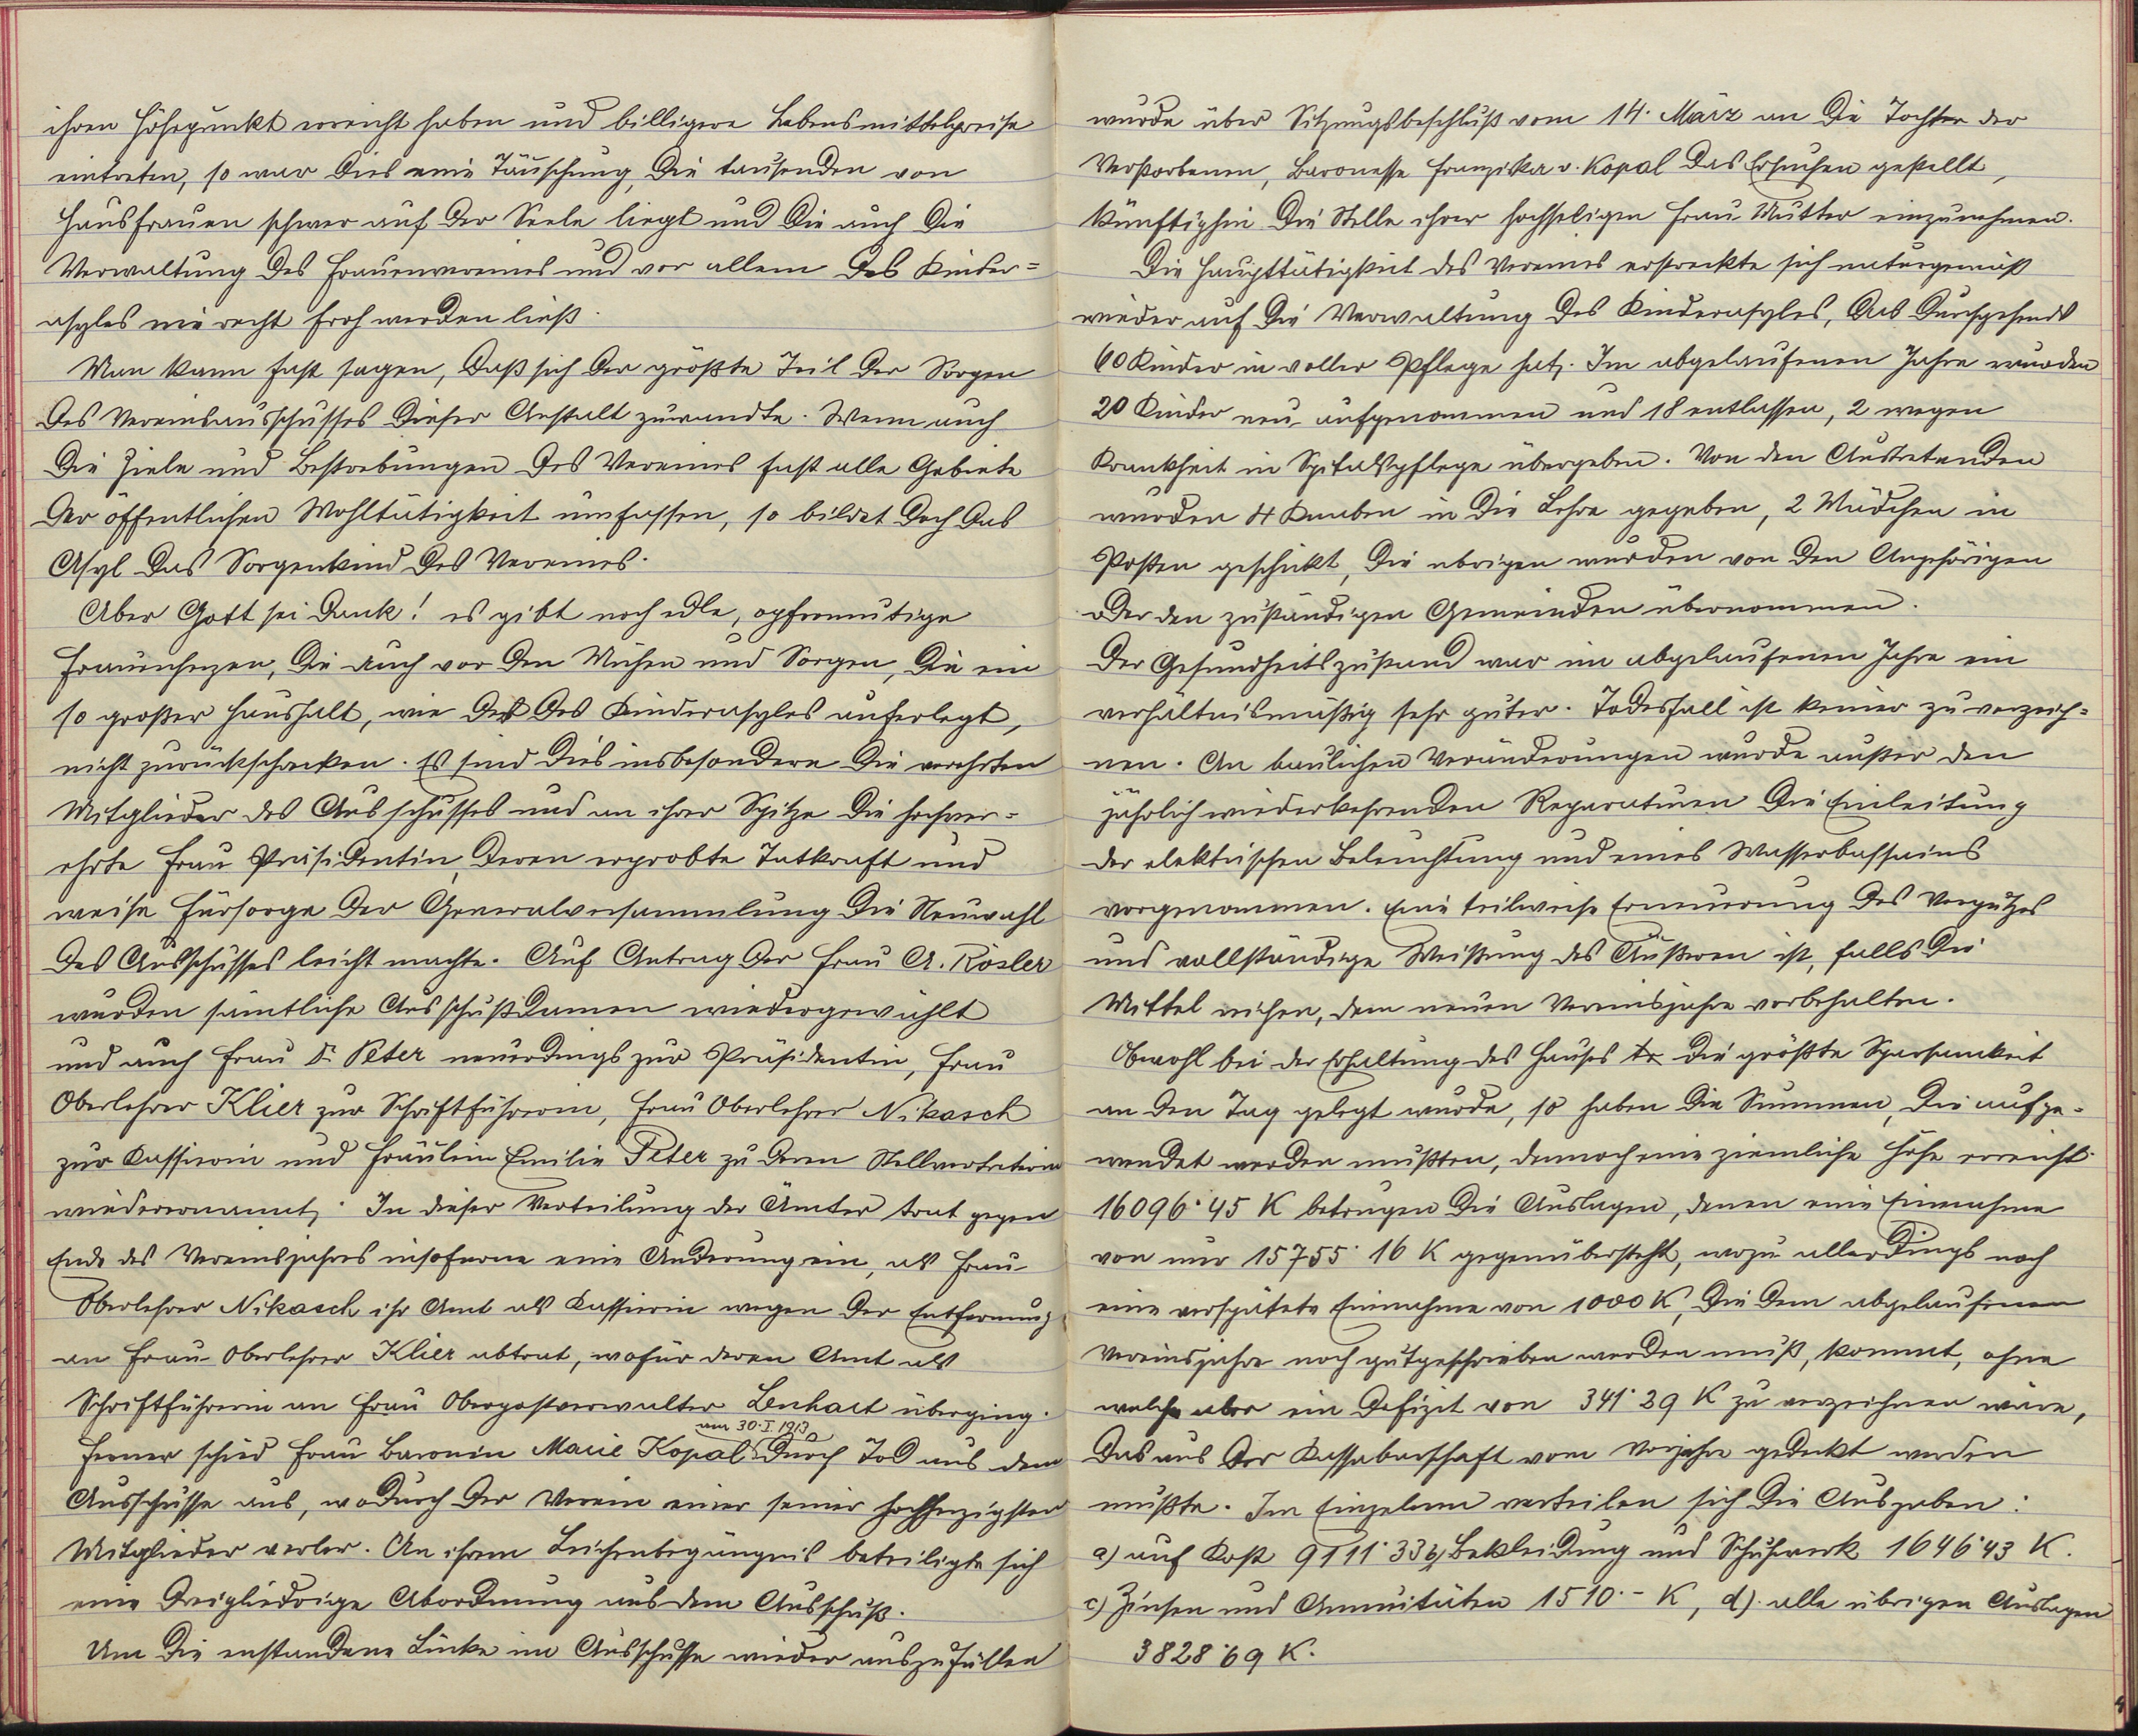 ihren Höhepunkt erreicht haben und billigere Lebensmittelpreise
eintreten, so war dies eine Täuschung, die tausenden von
Hausfrauen schwer auf der Seele liegt und die auch die
Verwaltung des Frauenvereines und vor allem des Kinder=
asyles nie recht froh werden ließ.
Man kann fast sagen, daß sich der größte Teil der Sorgen
des Vereinsausschusses dieser Anstalt zuwandte. Wenn auch
die Ziele und Bestrebungen des Vereines fast alle Gebiete
der öffentlichen Wohltätigkeit umfassen, so bildet doch das
Asyl das Sorgenkind des Vereines.
Aber Gott sei Dank! es gibt noch edle, opfermutige
Frauenherzen, die auch vor den Mühen und Sorgen, die ein
so großer Haushalt, wie der des Kinderasyles auferlegt,
nicht zurückschrecken. Es sind dies insbesondere die verehrten
Mitglieder des Ausschusses und an ihrer Spitze die hochver=
ehrte Frau Präsidentin, deren erprobte Tatkraft und
weise Fürsorge der Generalversammlung die Neuwahl
des Ausschusses leicht machte. Auf Antrag der Frau A. Rösler
wurden sämtliche Ausschußdamen wiedergewählt
und auch Frau Dr. Peter neuerdings zur Präsidentin, Frau
Oberlehrer Klier zur Schriftführerin, Frau Oberlehrer Nikasch
zur Kassierin und Fräulein Emilie Peter zu deren Stellvertreterin
wiederernannt. In dieser Verteilung der Ämter trat gegen
Ende des Vereinsjahres insoferne eine Änderung ein, als Frau
Oberlehrer Nikasch ihr Amt als Kassierin wegen der Entfernung
an Frau Oberlehrer Klier abtrat, wofür deren Amt als
Schriftführerin an Frau Oberpostverwalter Lenhart überging.
am 30.I.1913
Ferner schied Frau Baronin Marie Kopal durch Tod aus dem
Ausschusse aus, wodurch der Verein einer seiner hochherzigsten
Mitglieder verlor. An ihrem Leichenbegängnis beteiligte sich
eine dreigliedrige Abordnung aus dem Ausschuß.
Um die enstandene Lücke im Ausschusse wieder auszufüllen
wurde über Sitzungsbeschluß vom 14. März an die Tochter der
Verstorbenen, Baronesse Franziska v. Kopal das Ersuchen gestellt,
künftighin die Stelle ihrer hochseligen Frau Mutter einzunehmen.
Die Haupttätigkeit des Vereines erstreckte sich naturgemäß
wieder auf die Verwaltung des Kinderasyles, das durchgehends
60 Kinder in voller Pflege hat. Im abgelaufenen Jahre wurden
20 Kinder neu aufgenommen und 18 entlassen, 2 wegen
Krankheit in Spitalspflege übergeben. Von den Austretenden
wurden 4 Knaben in die Lehre gegeben, 2 Mädchen in
Posten geschickt, die übrigen wurden von den Angehörigen
oder den zuständigen Gemeinden übernommen.
Der Gesundheitszustand war im abgelaufenen Jahre ein
verhältnismäßig sehr guter. Todesfall ist keiner zu verzeich=
nen. An baulichen Veränderungen wurde außer den
jährlich wiederkehrenden Reparaturen die Einleitung
der elektrischen Beleuchtung und eines Wasserbassains
vorgenommen. Eine teilweise Erneuerung des Verputzes
und vollständige Weißung des Äußeren ist, falls die
Mittel reichen, dem neuen Vereinsjahre vorbehalten.
Obwohl bei der Erhaltung des Hauses die größte Sparsamkeit
an den Tag gelegt wurde, so haben die Summen, die aufge=
wendet werden mußten, dennoch eine ziemliche Höhe erreicht.
16096·45 K betrugen die Auslagen, denen eine Einnahme
von nur 15755·16 K gegenübersteht, wozu allerdings noch
eine verspätete Einnahme von 1000 K, die dem abgelaufenen
Vereinsjahre noch gutgeschrieben werden muß, kommt, ohne
welche aber ein Defizit von 341·29 K zu verzeichnen wäre,
das aus der Kassabarschaft vom Vorjahre gedeckt werden
mußte. Im Einzelnen verteilen sich die Ausgaben:
a) auf Kost 9111·33 b) Bekleidung und Schuhwerk 1646·43 K.
c) Zinsen und Annuitäten 1510·– K, d) alle übrigen Auslagen
3828·69 K.